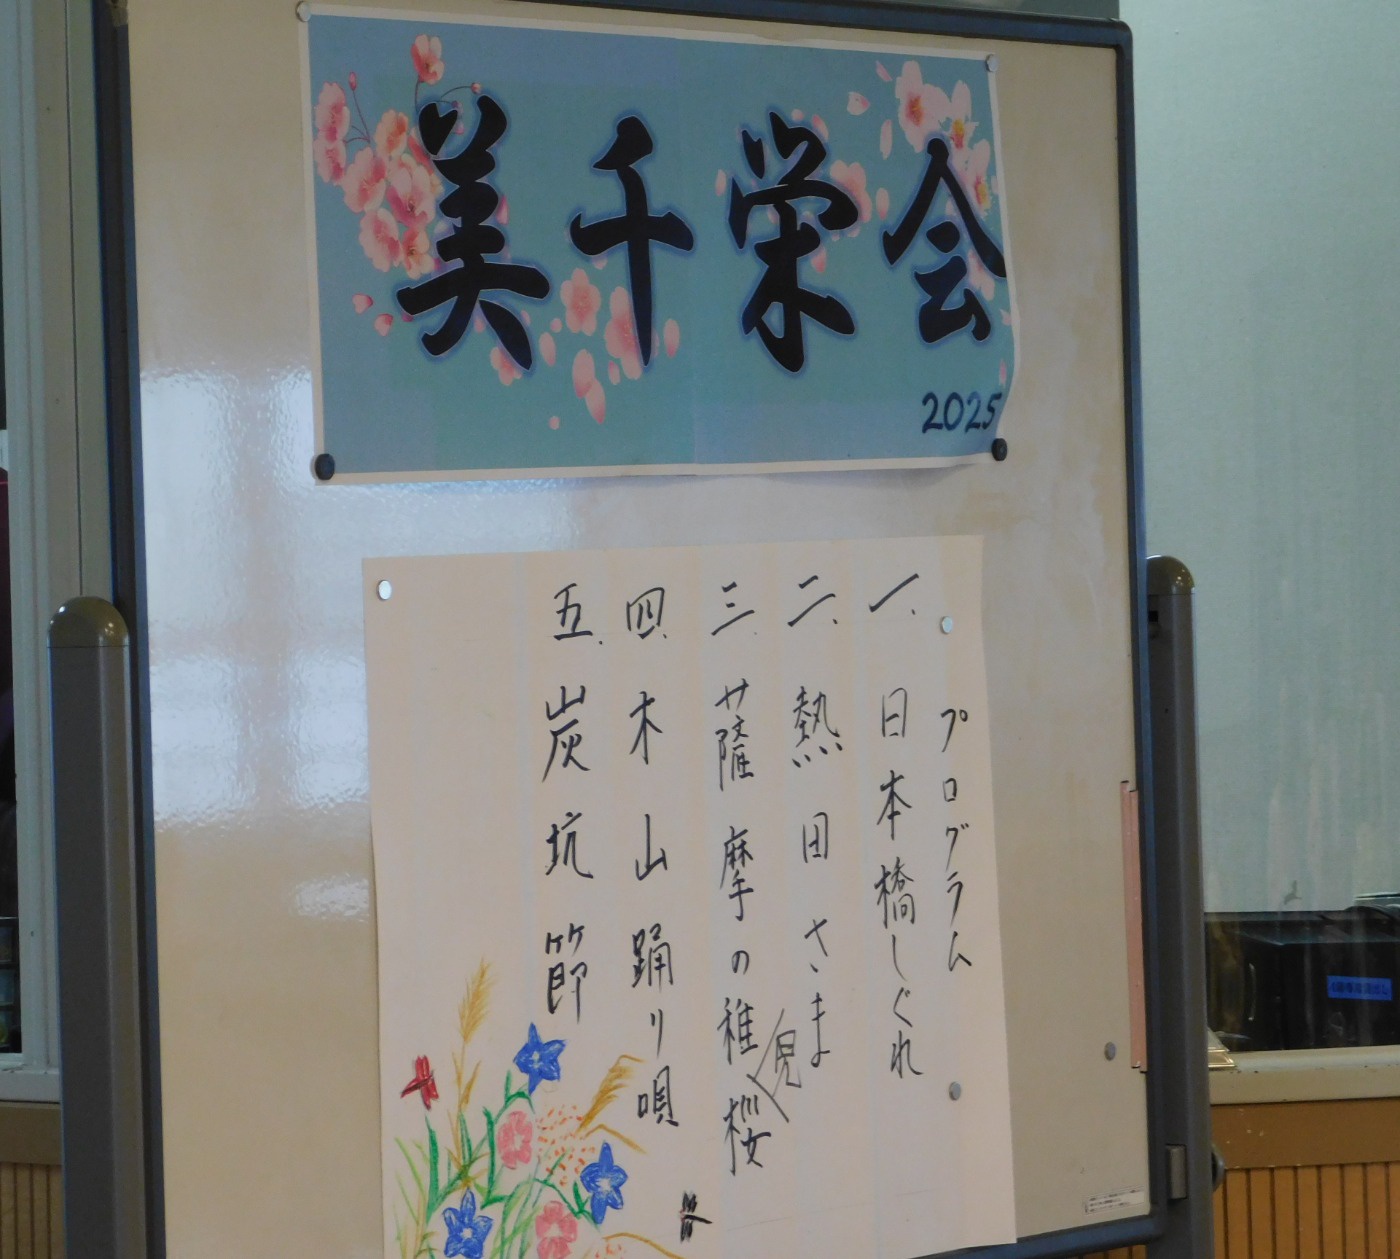 美千栄会
2025
プログラム
一、日本橋しぐれ
二、熱田さま
三、薩摩の稚児桜
四、木山踊り唄
五、炭坑節